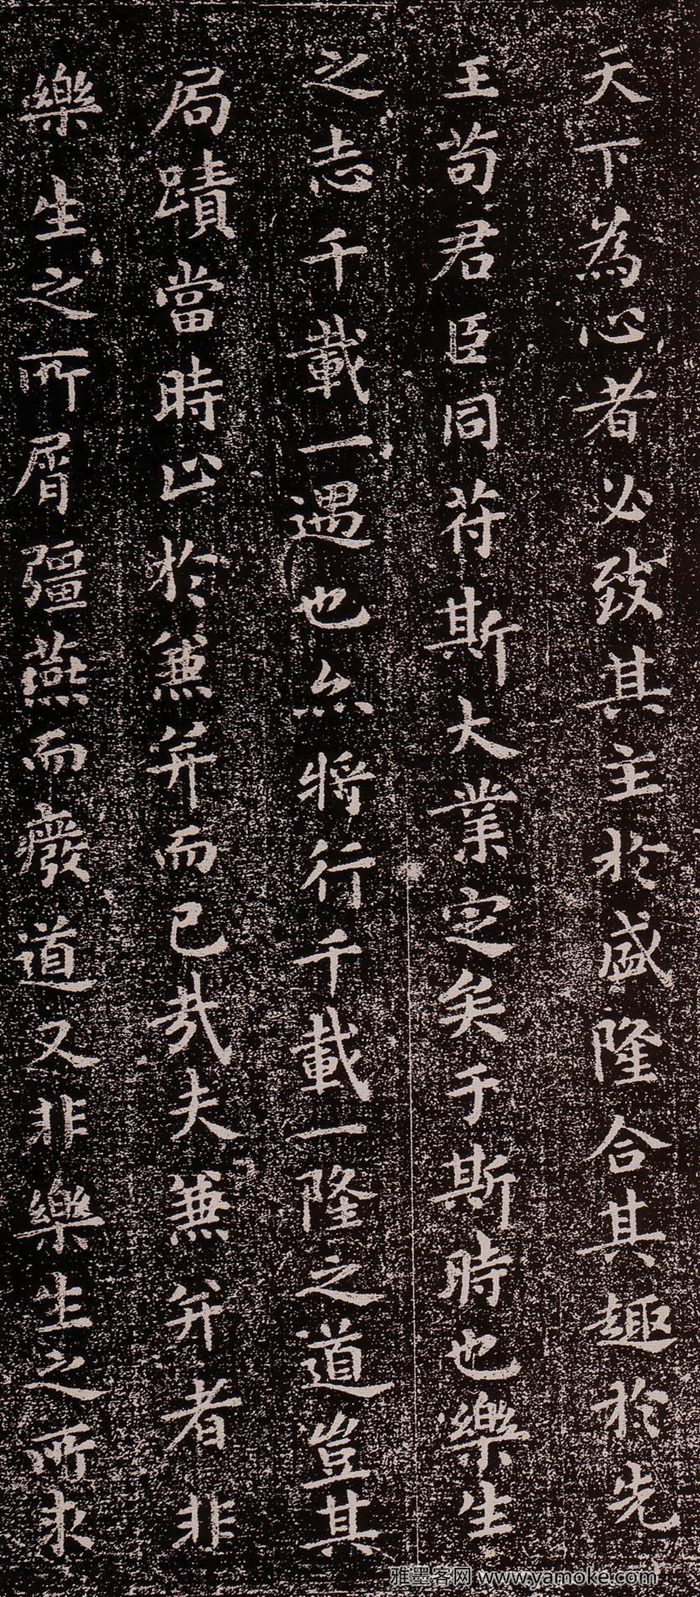 天下為心者必致其主於盛隆合其趣於先
王苟君臣同苻斯大業定矣于斯時也樂生
之志千載一遇也亦將行千載一隆之道豈其
局蹟當時止於兼并而已哉夫兼并者非
樂生之所屑彊燕而廢道又非樂生之所求
雅墨客网 www.yamoke.com